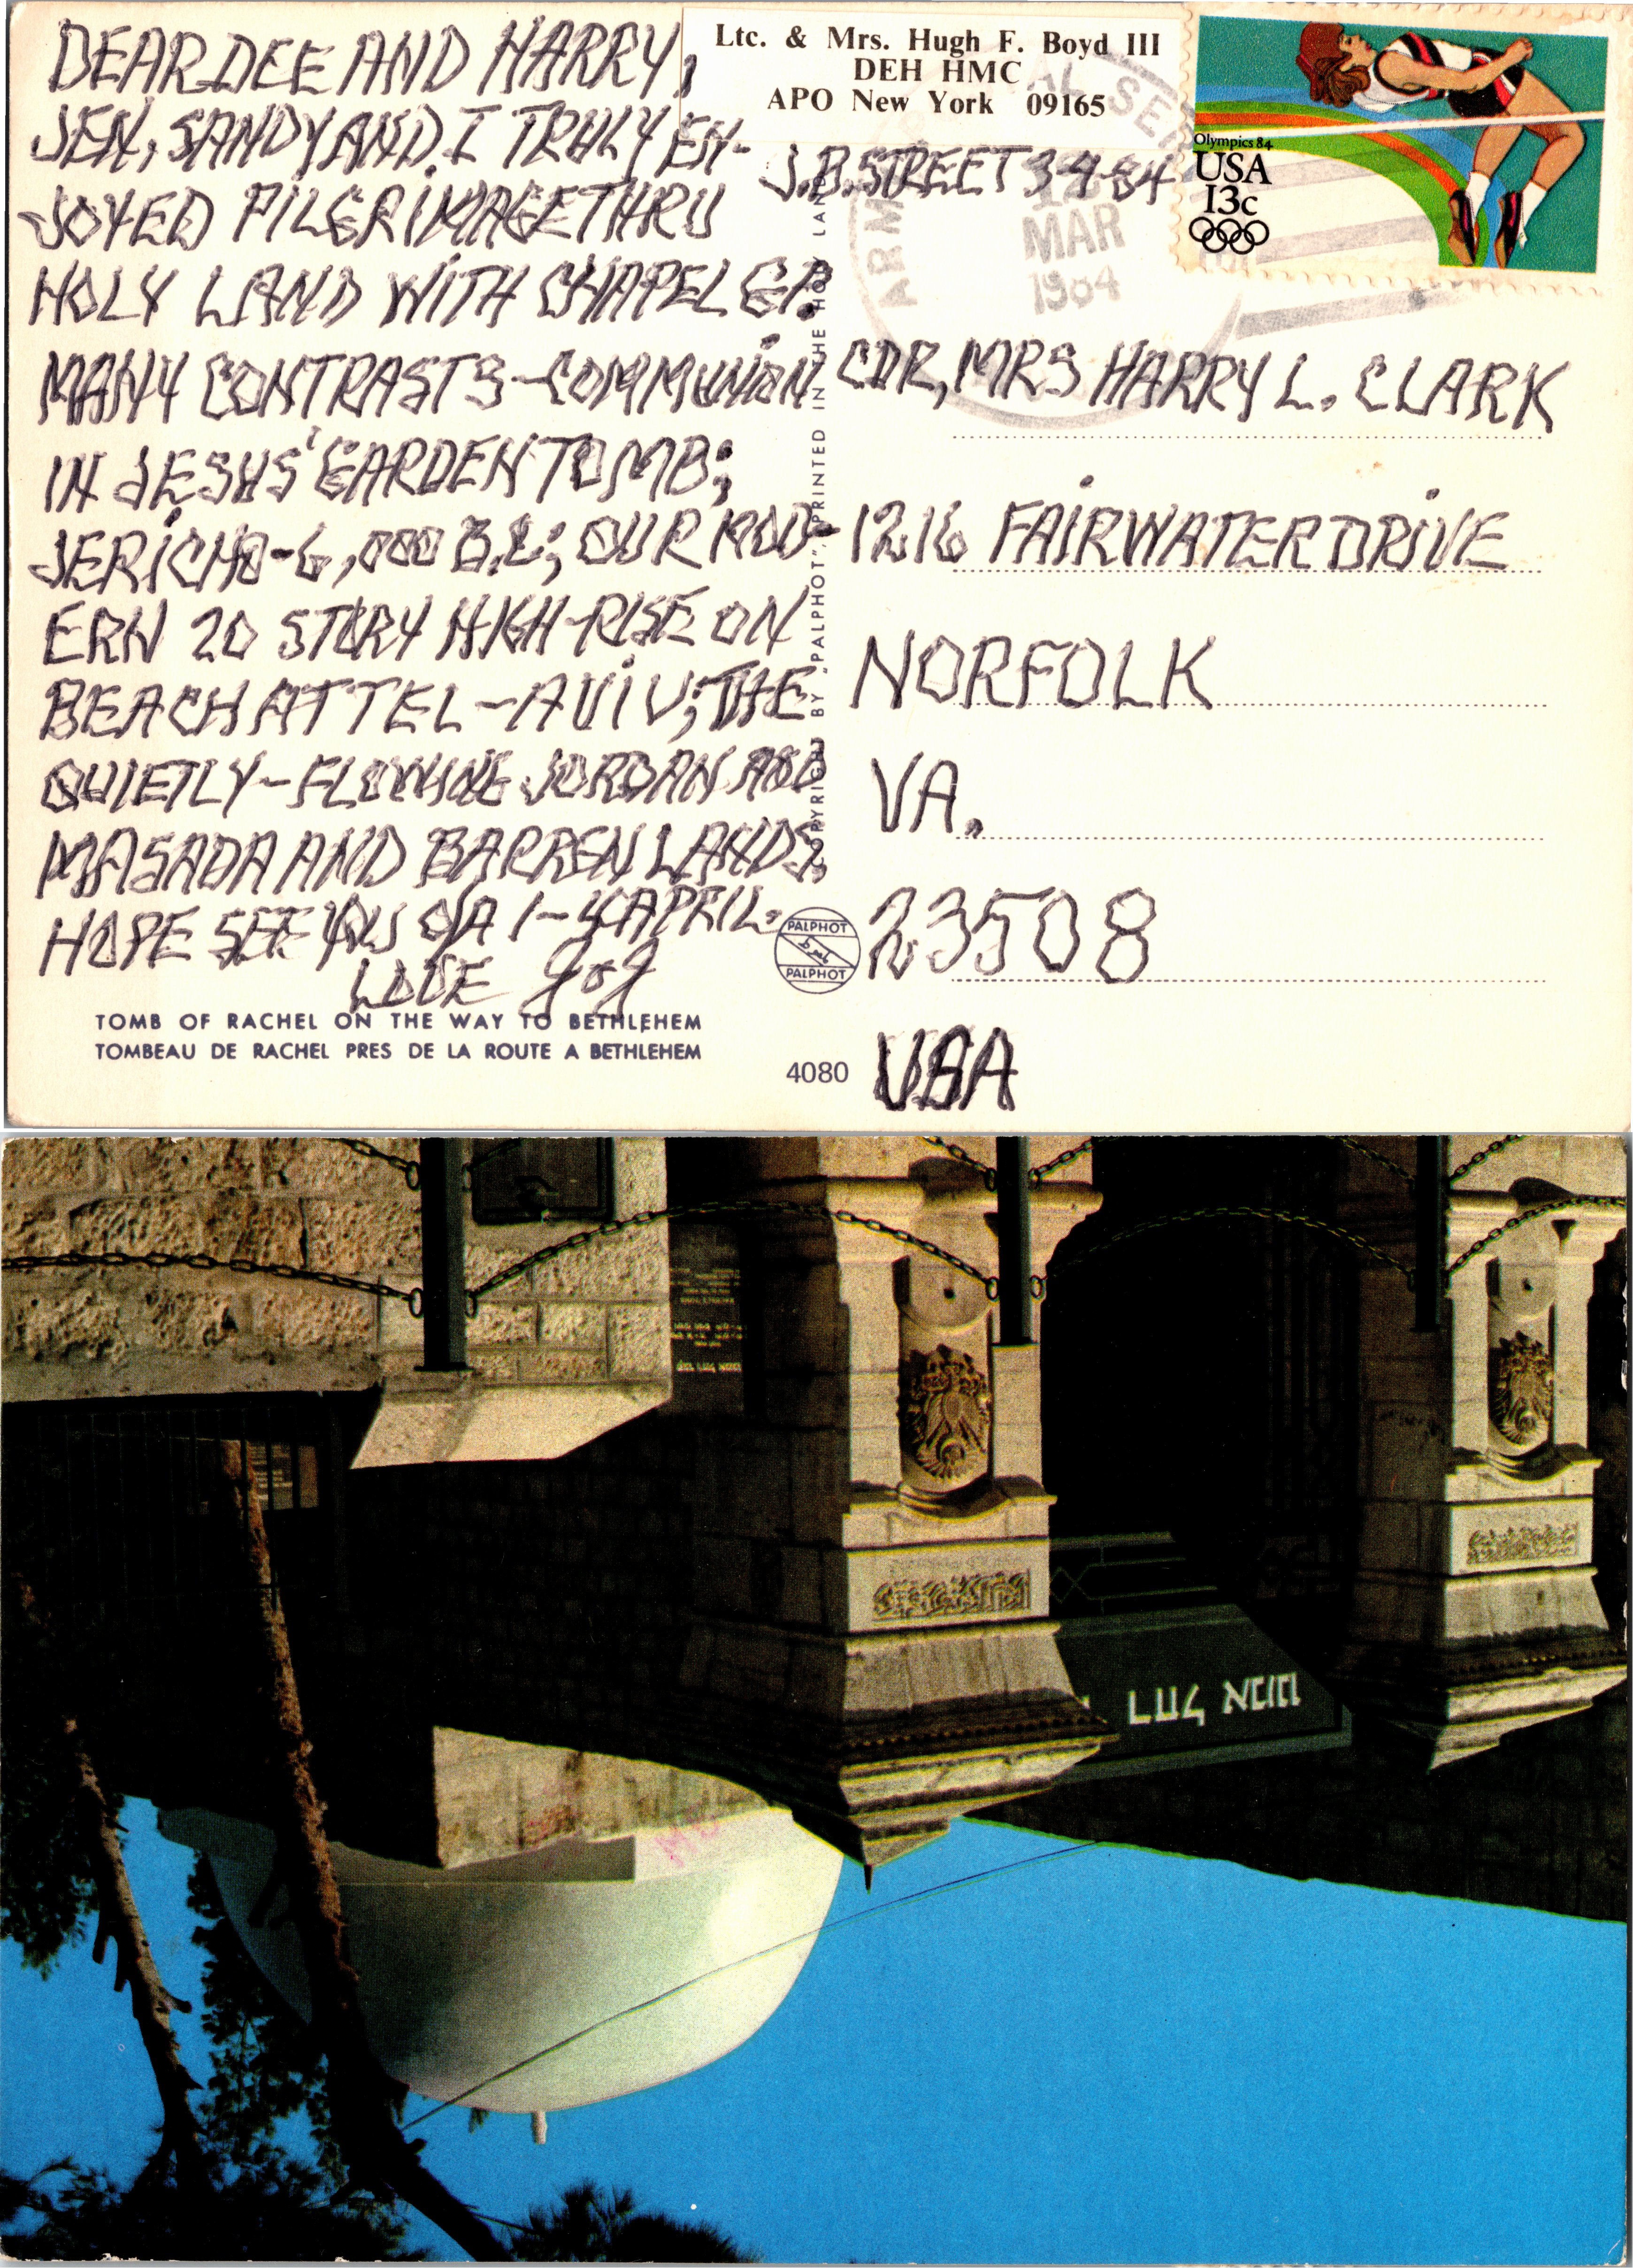 DEAR DEE AND HARRY,
JEN, SANDY AND I TRULY EN-
JOYED PILGRIMAGE THRU
HOLY LAND WITH CHAPEL GP.
MANY CONTRASTS - COMMUNION
IN JESUS' GARDEN TOMB;
JERICHO - 6,000 B.C; OUR MOD-
ERN 20 STORY HIGH-RISE ON
BEACH AT TEL-AVIV; THE
QUIETLY-FLOWING JORDAN AND
MASADA AND BARREN LANDS.
HOPE SEE YOU O/A 1-4 APRIL.
LOVE
TOMB OF RACHEL ON THE WAY TO BETHLEHEM
TOMBEAU DE RACHEL PRES DE LA ROUTE A BETHLEHEM
COPYRIGHT BY "PALPHOT" PRINTED IN THE HOLY LAND
PALPHOT
PALPHOT
4080
Ltc. & Mrs. Hugh F. Boyd III
DEH HMC
APO New York 09165
J.B. STREET 3-4-84
MAR
1984
Olympics 84
USA
13c
CDR, MRS HARRY L. CLARK
1216 FAIRWATER DRIVE
NORFOLK
VA.
23508
USA
קבר רחל אמנו